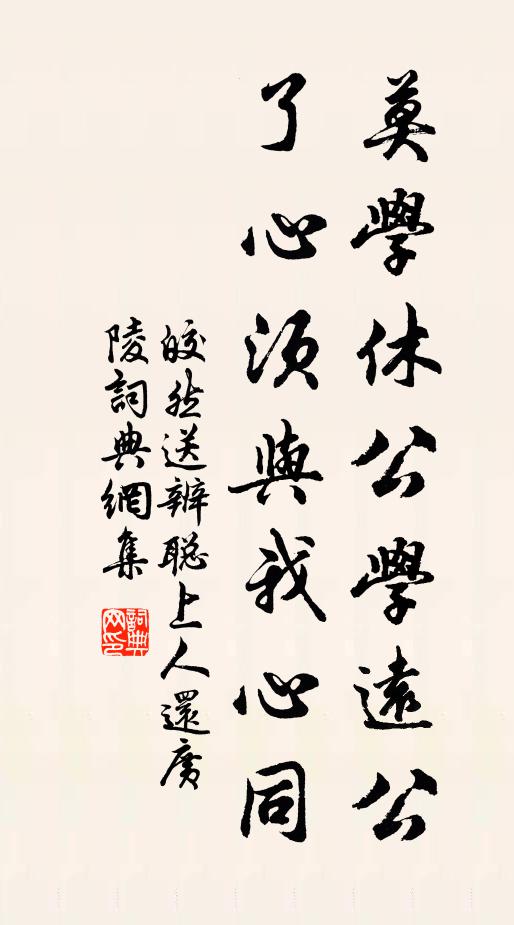 莫學休公學遠公
了心須與我心同
皎然送辨聰上人還廣
陵詞典網集
詞典
网印